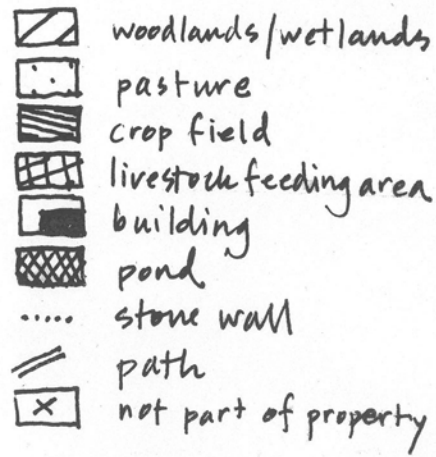 woodlands/wetlands
pasture
crop field
livestock feeding area
building
pond
stone wall
path
not part of property